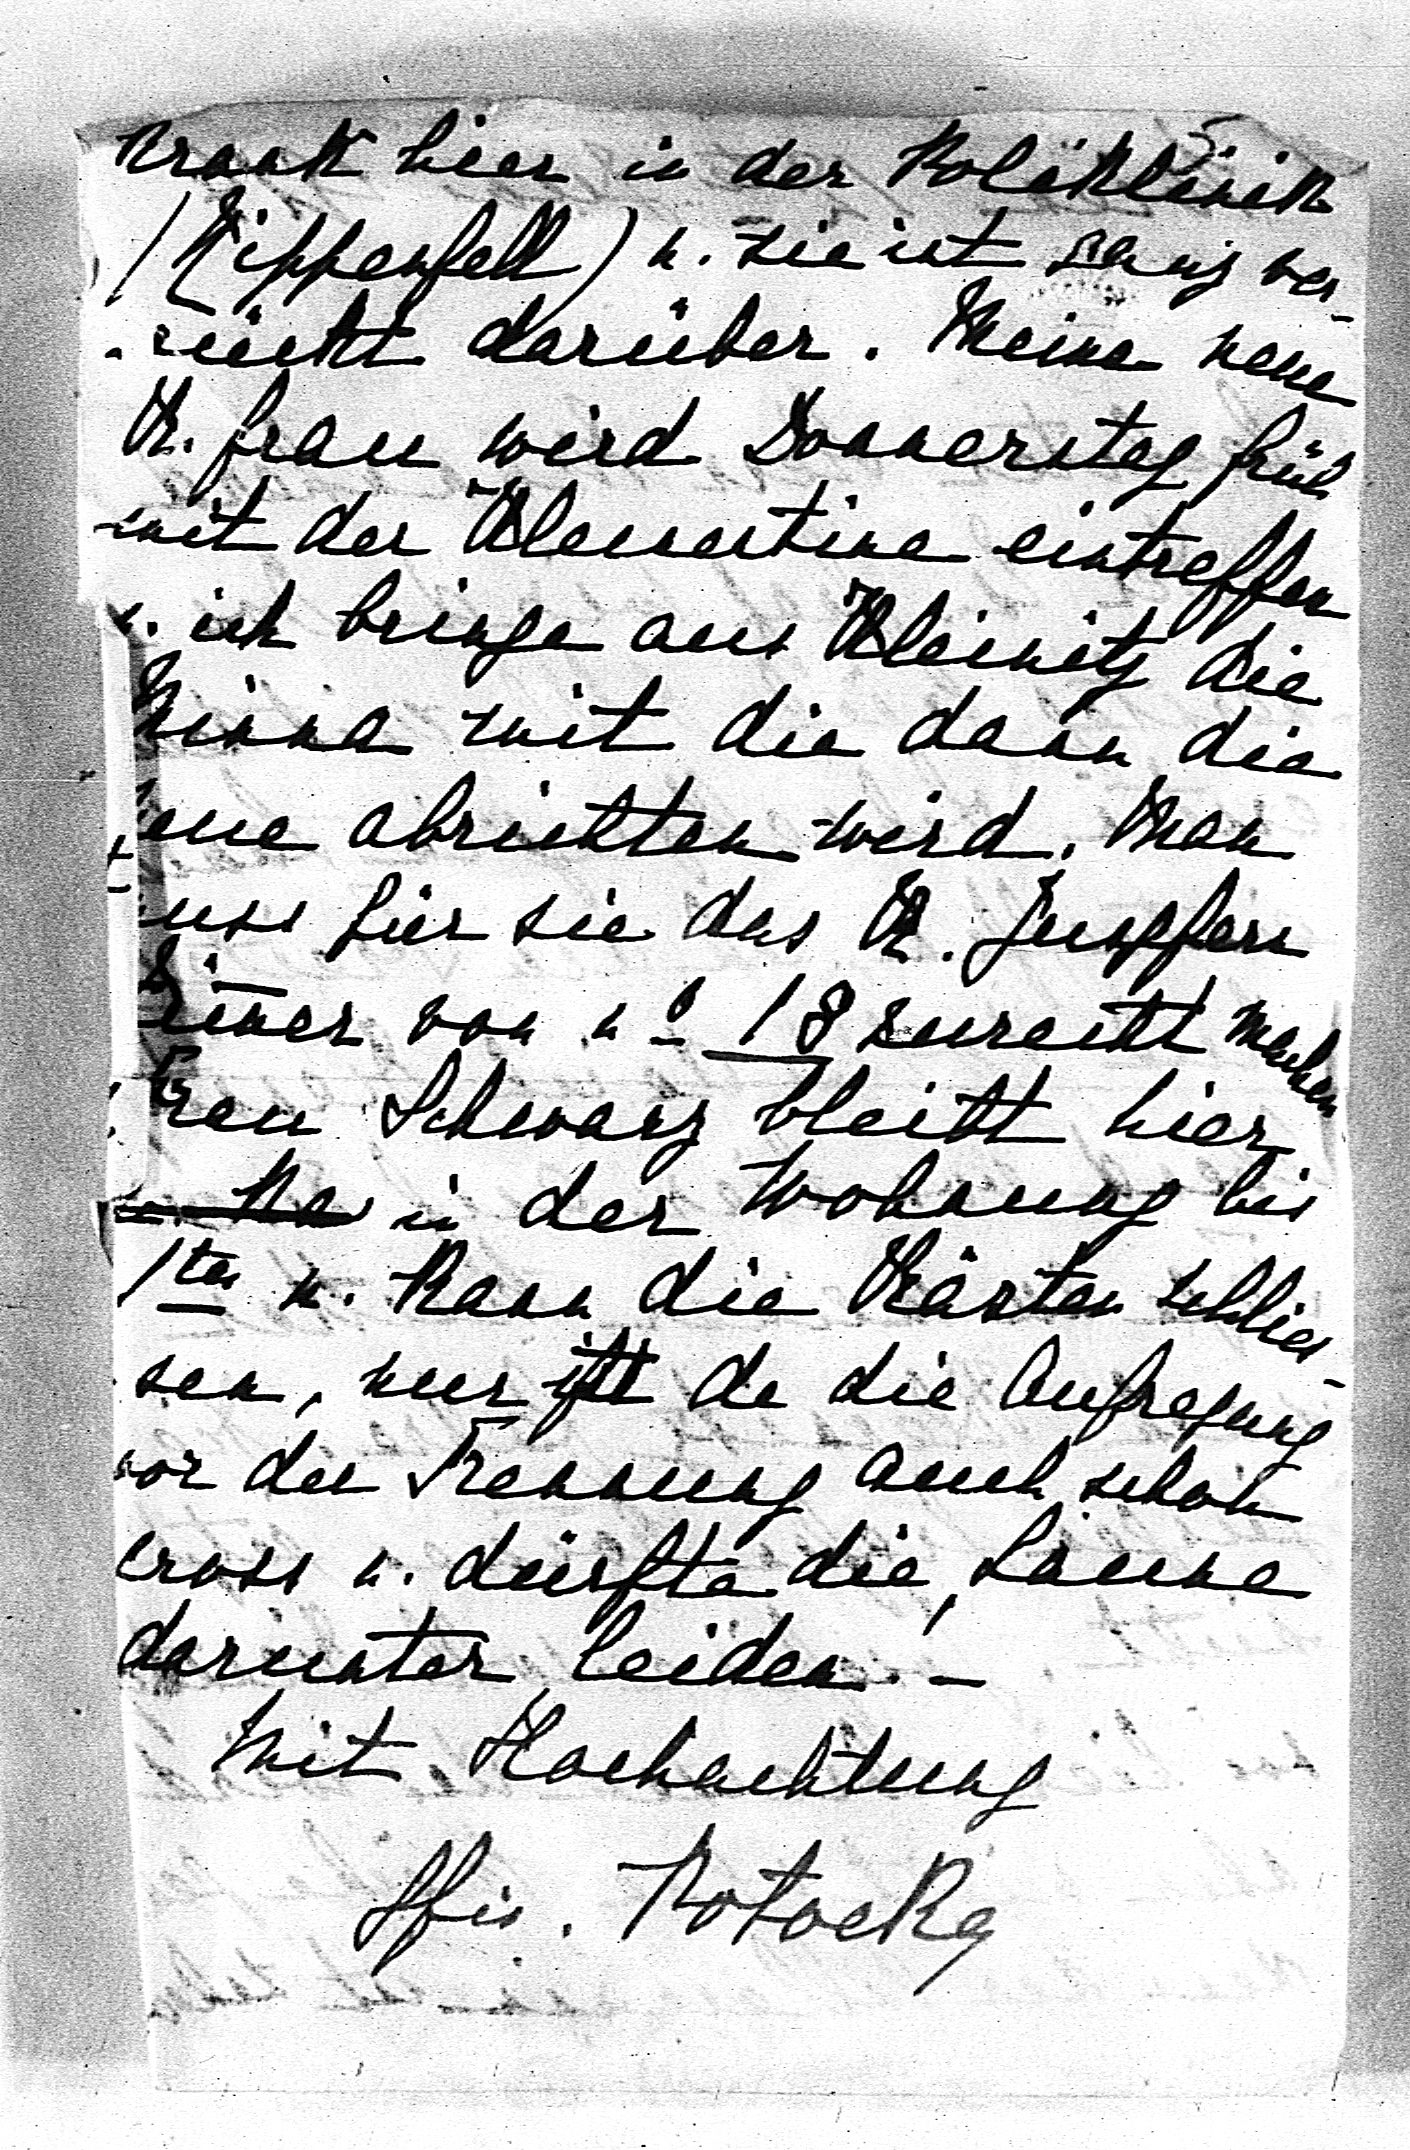 krank hier in der Poliklinik
(Rippenfell) u. sie ist ganz ver-
rückt darüber. Meine neue
K. frau wird Donnerstag früh
mit der Klementine eintreffen
u. ich bringe aus Kleinitz die
Minna mit die dann die
neue abrichten wird. Man
muss für sie das K. Jungfern
Zimmer von No 18 zurecht machen
Frau Schwarz bleibt hier
in der Wohnung bis
1ten u. kann die Kästen schlies-
sen, nur ist da die Aufregung
vor der Trennung auch schon
gross u. dürfte die Laune
darunter leiden. –
Mit Hochachtung
Potocka